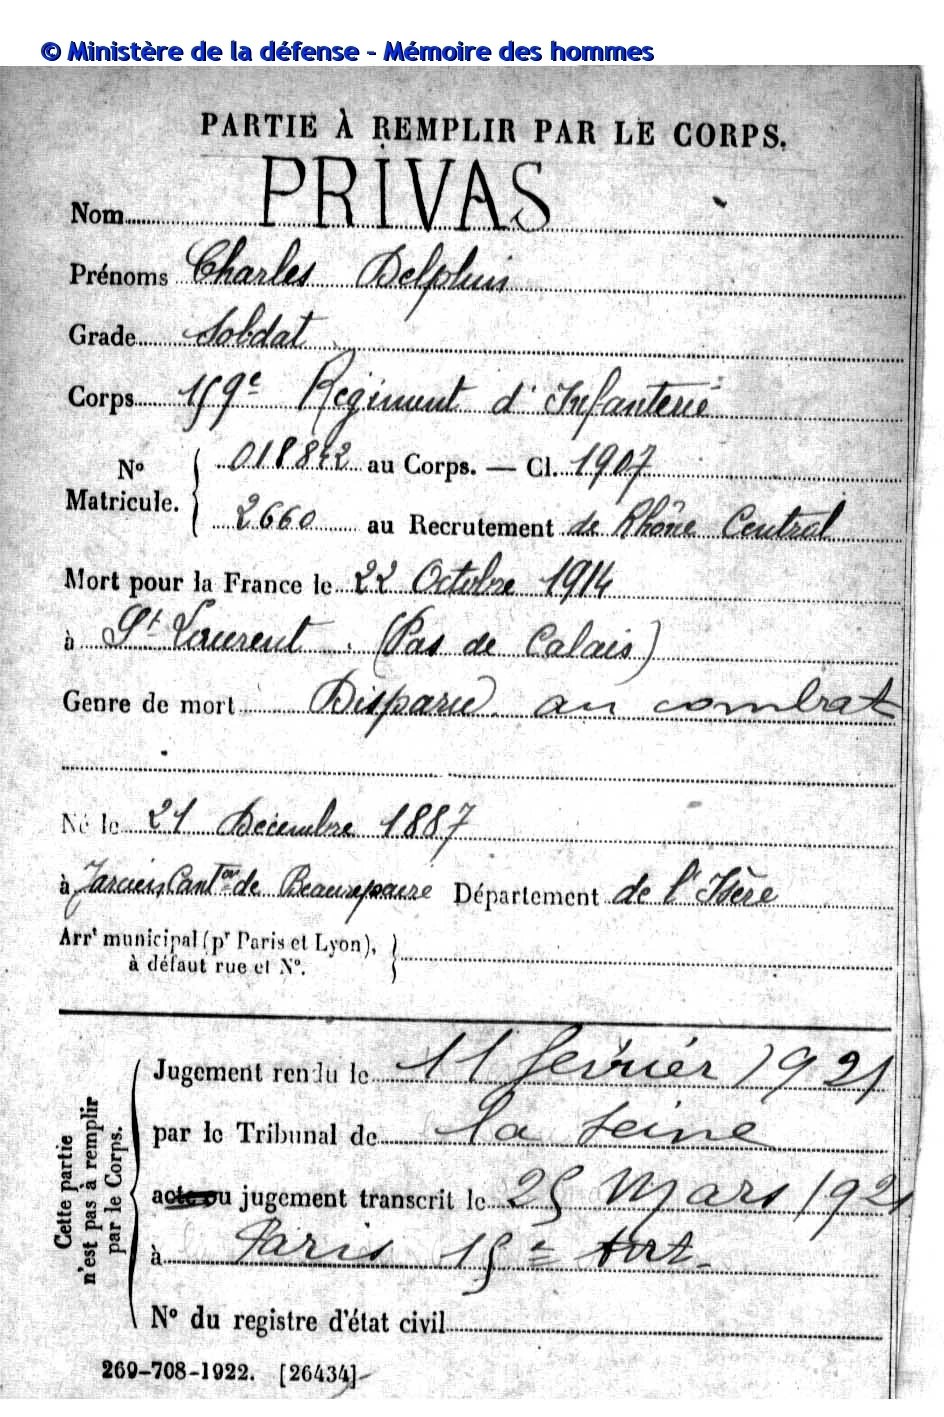 © Ministère de la défense - Mémoire des hommes
PARTIE À REMPLIR PAR LE CORPS.
Nom PRIVAS
Prénoms Charles Delphin
Grade Soldat
Corps 159e Régiment d'Infanterie
N° Matricule. 018842 au Corps. — Cl. 1907
2660 au Recrutement de Rhône Central
Mort pour la France le 22 Octobre 1914
à St Laurent (Pas de Calais)
Genre de mort Disparu au combat
Né le 21 Décembre 1887
à Jarcieu Cant on de Beaurepaire Département de l'Isère
Arrt municipal (pr Paris et Lyon),
à défaut rue et N°.
Cette partie n'est pas à remplir par le Corps.
Jugement rendu le 11 février 1921
par le Tribunal de la Seine
acte ou jugement transcrit le 25 Mars 1921
à Paris 15e Arrt
N° du registre d'état civil
269-708-1922. [26434]